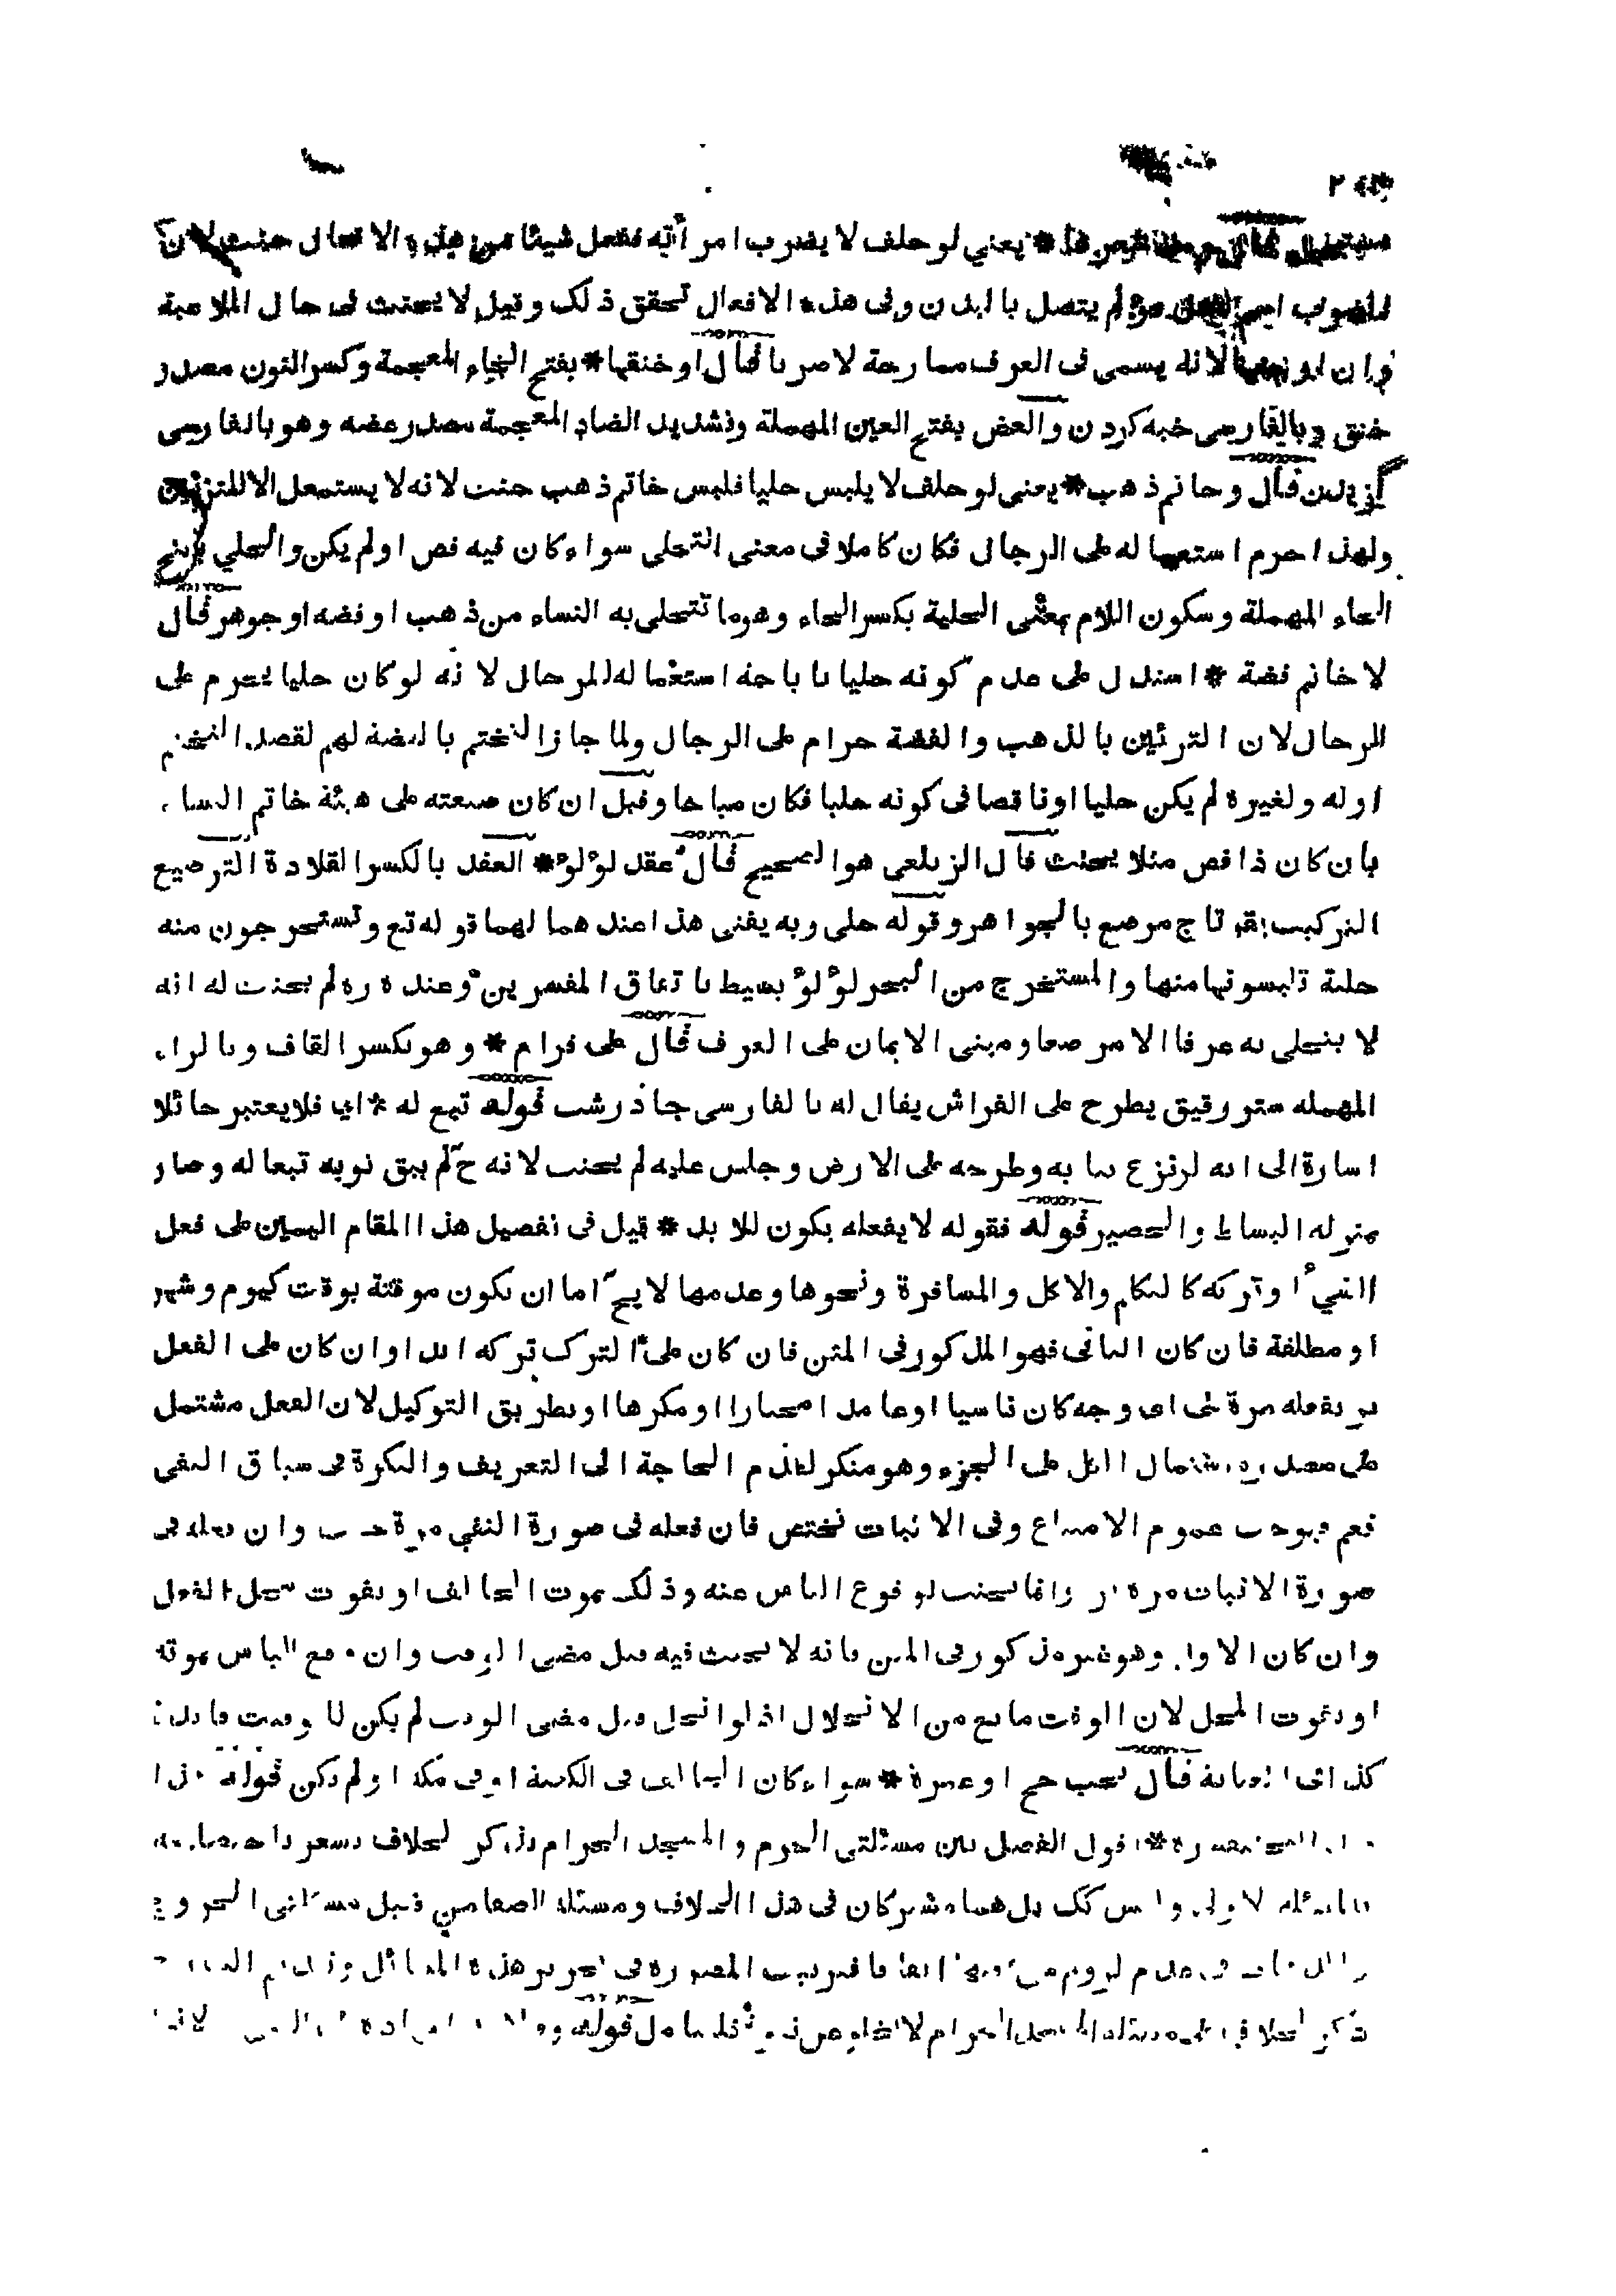 يعني لو حلف لا يضرب امرأته ففعل شيئا من هذه الافعال حنث لان
الضرب اسم لفعل مؤلم يتصل بالبدن وفى هذه الافعال تحقق ذلك وقيل لا يحنث فى حال الملاعبة
لانه يسمى فى العرف ممازحة لا ضربا قال او خنقها * بفتح الخاء المعجمة وكسر النون مصدر
خنق وبالفارسى خبه كردن والعض بفتح العين المهملة وتشديد الضاد المعجمة مصدر عضه وهو بالفارسى
گزيدن قال وخاتم ذهب * يعنى لو حلف لا يلبس حليا فلبس خاتم ذهب حنث لانه لا يستعمل الا للتزين
ولهذا حرم استعماله على الرجال فكان كاملا فى معنى التحلى سواء كان فيه فص اولم يكن والحلي بفتح
الحاء المهملة وسكون اللام بمعنى الحلية بكسر الحاء وهو ما تتحلى به النساء من ذهب او فضه او جوهر قال
لا خاتم فضة * استدل على عدم كونه حليا باباحة استعماله للرجال لانه لو كان حليا يحرم على
الرجال لان التزئين بالذهب والفضة حرام على الرجال ولما جاز التختم بالفضة لهم لقصد التختم
اوله ولغيره لم يكن حليا او ناقصا فى كونه حليا فكان مباحا وقيل ان كان صيغته على هيئة خاتم النساء
بان كان ذا فص مثلا يحنث قال الزيلعى هو الصحيح قال عقد لؤلؤ * العقد بالكسر القلادة الترصيع
التركيب يقو تاج مرصع بالجواهر وقوله حلى وبه يفتى هذا عندهما لهما قوله تع وتستخرجون منه
حلية تلبسونها منها والمستخرج من البحر لؤلؤ بسيط باتفاق المفسرين وعنده ره لم يحنث له انه
لا يتحلى به عرفا الا مرصعا ومبنى الايمان على العرف قال على قرام * وهو بكسر القاف وبالراء
المهمله ستر رقيق يطرح على الفراش يقال له بالفارسى جادرشب قوله تبع له * اى فلا يعتبر حائلا
اشارة الى انه لو نزع ثيابه وطرحه على الارض وجلس عليه لم يحنث لانه ح لم يبق ثوبه تبعا له وصار
بمنزله البساط والحصير قوله فقوله لا يفعله يكون للابد * قيل فى تفصيل هذا المقام اليمين على فعل
الشيء او تركه كالتكلم والاكل والمسافرة ونحوها وعدمها لا يخ اما ان تكون موقتة بوقت كيوم وشهر
او مطلقة فان كان الثانى فهو المذكور فى المتن فان كان على الترك تركه ابدا وان كان على الفعل
بر بفعله مرة على اى وجه كان ناسيا او عامدا مختارا او مكرها او بطريق التوكيل لان الفعل مشتمل
على مصدره اشتمال الكل على الجزء وهو منكر لعدم الحاجة الى التعريف والنكرة فى سياق النفى
تعم فيوجب عموم الامتناع وفى الاثبات تختص فان فعله فى صورة النفى مرة حنث وان فعله فى
صورة الاثبات مرة بر وانما يحنث لوقوع اليأس عنه وذلك بموت الحالف او بفوت محل الفعل
وان كان الاول وهو غير مذكور فى المتن فانه لا يحنث فيه قبل مضى الوقت وان وقع اليأس بموته
او بفوت المحل لان الوقت مانع من الانحلال اذ لو انحل قبل مضى الوقت لم يكن للوقت فائدة
كذا فى قال يجب حج او عمرة * سواء كان الحالف فى الكعبة او فى مكة اولم يكن قوله
اقول الفصل بين مسئلتى الحرم والمسجد الحرام بذكر الخلاف يشعر
بل هما مشتركان فى هذا الخلاف ومسئلة الصفا من قبل مسئلتى الخروج
فى عدم لزوم فى تحرير هذه المسائل
المسجد الحرام قوله